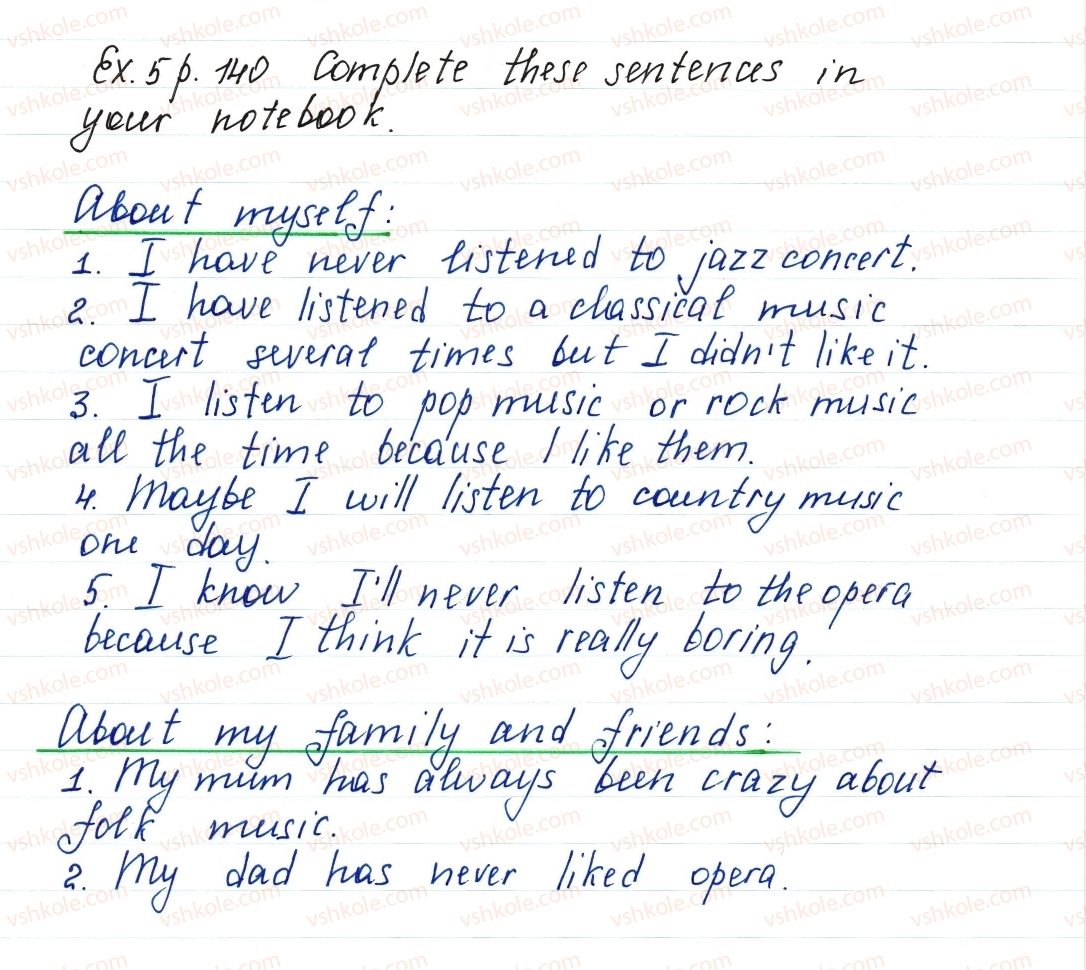 Ex. 5 p. 140 Complete these sentences in
your notebook.
About myself:
1. I have never listened to jazz concert.
2. I have listened to a classical music
concert several times but I didn't like it.
3. I listen to pop music or rock music
all the time because I like them.
4. Maybe I will listen to country music
one day.
5. I know I'll never listen to the opera
because I think it is really boring.
About my family and friends:
1. My mum has always been crazy about
folk music.
2. My dad has never liked opera.